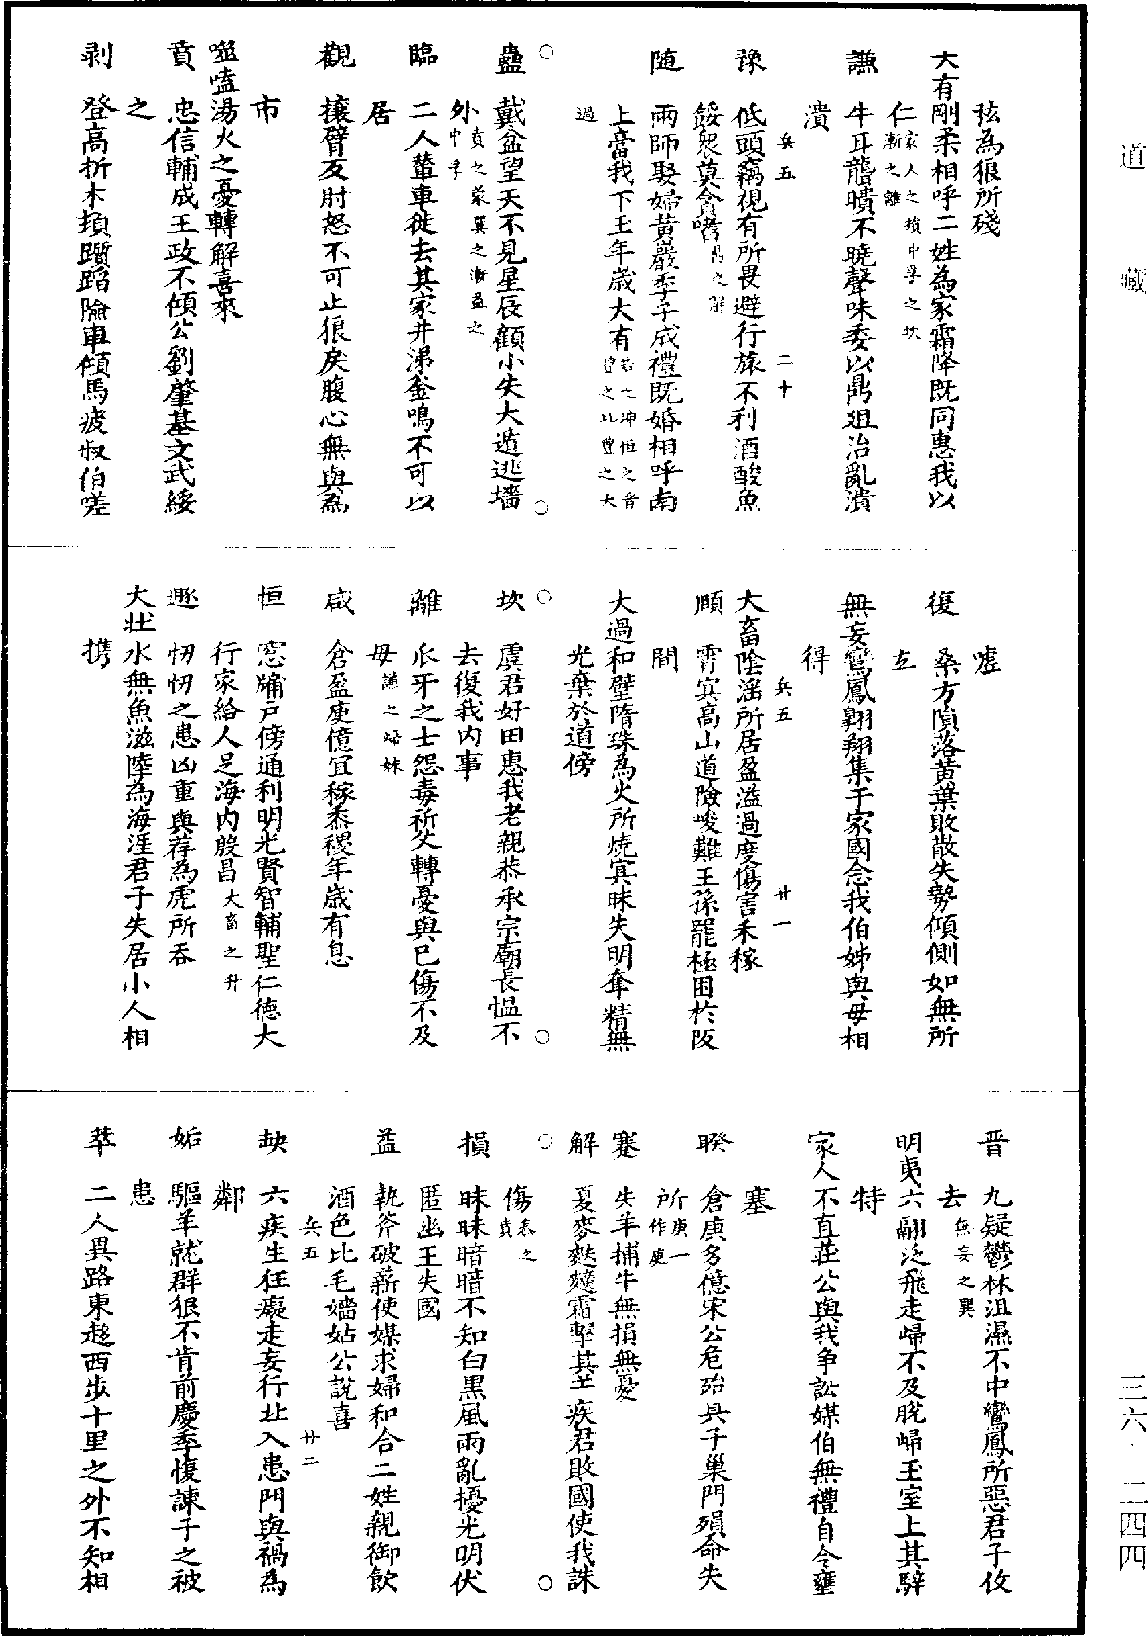 道藏
三六·二四四
孩為狼所殘
大有剛柔相呼二姓為家霜降既同惠我以
仁家人之損中孚之坎漸之離
謙　牛耳聾聵不曉聲味委以鼎俎治亂潰
潰
兵五　二十
豫　低頭竊視有所畏避行旅不利酒酸魚
餒衆莫貪嗜
随　兩師娶婦黃巖季子成禮既婚相呼南
上膏我下土年歲大有
過
○　○
蠱　戴盆望天不見星辰顧小失大遁逃墻
外賁之蒙巽之漸益之中孚
臨　二人輦車徙去其家井沸釜鳴不可以
居
觀　攘臂反肘怒不可止狼戾腹心無與為
市
噬嗑湯火之憂轉解喜來
賁　忠信輔成王政不傾公劉肇基文武綏
之
剥　登高折木損躓蹈險車傾馬疲叔伯嗟
嘘
復　桑方隕落黃葉敗散失勢傾側如無所
立
無妄鸞鳳翱翔集于家國念我伯姊與母相
得
兵五　廿一
大畜陰滛所居盈溢過度傷害禾稼
頤　霄寞高山道險峻難王孫罷極困於阪
間
大過和璧隋珠為火所燒寞昧失明奪精無
光棄於道傍
○　○
坎　虞君好田惠我老親恭承宗廟長愠不
去復我内事
離　爪牙之士怨毒祈父轉憂與已傷不及
母謙之歸妹
咸　倉盈庾億宜稼黍稷年歲有息
恒　窓牖户傍通利明光賢智輔聖仁德大
行家給人足海内殷昌大畜之升
遯　忉忉之患凶重與荐為虎所吞
大壯水無魚滋陸為海涯君子失居小人相
携
晋　九疑鬱林沮濕不中鸞鳳所惡君子攸
去無妄之巽
明夷六翮泛飛走歸不及脱歸王室上其騂
特
家人不直莊公與我争訟媒伯無禮自令壅
塞
睽　倉庚多億宋公危殆吳子巢門殞命失
所庚一作庾
蹇　失羊捕牛無損無憂
解　夏麥麩䵃霜擊其芒疾君敗國使我誅
傷泰之賁
○　○
損　昧昧暗暗不知白黑風雨亂擾光明伏
匿幽王失國
益　執斧破薪使媒求婦和合二姓親御飲
酒色比毛嬙姑公說喜
兵五　廿二
夬　六疾生狂癡走妄行北入患門與禍為
鄰
姤　驅羊就群狠不肯前慶季愎諫子之被
患
萃　二人異路東趍西步十里之外不知相